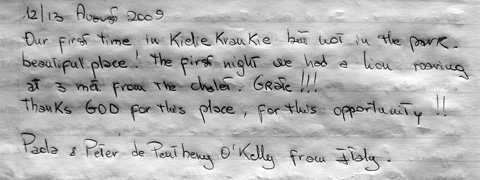 12/13 August 2009
Our first time in Kielie Krankie but not in the park.
beautiful place! the first night we had a lion roaring
at 3 met from the chalet. Grate !!!
thanks GOD for this place, for this opportunity !!
Paola & Peter de Pentheny O'Kelly from Italy.